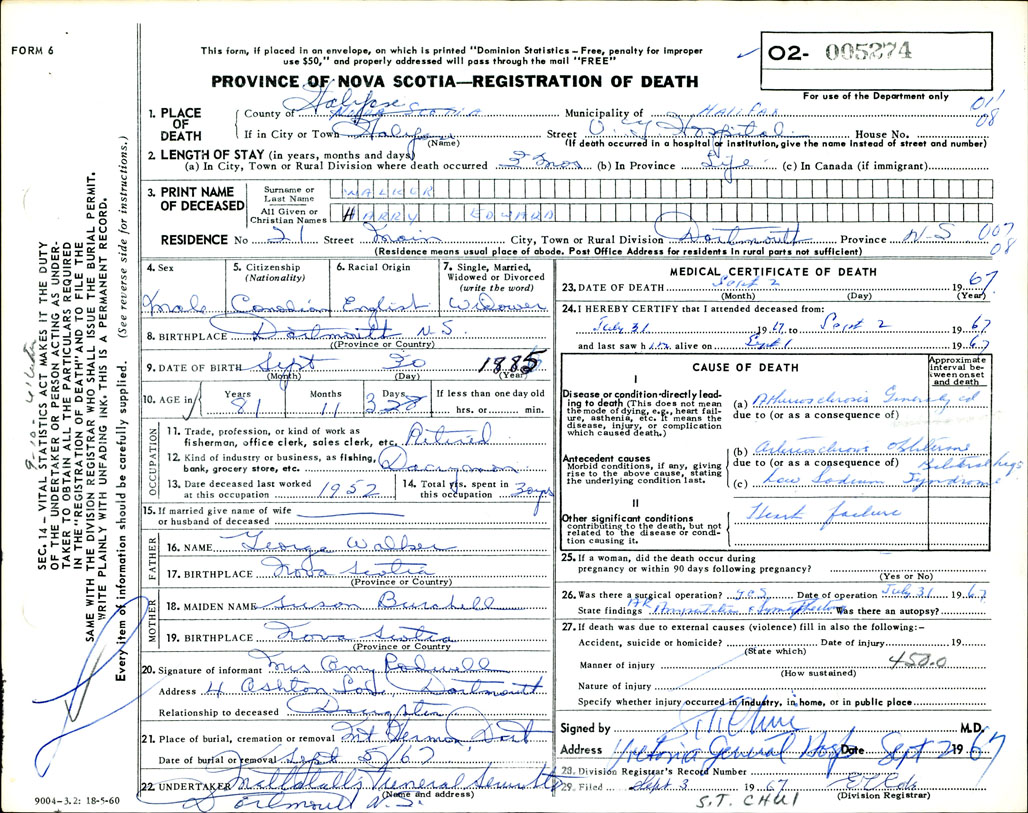 FORM 6
This form, if placed in an envelope, on which is printed "Dominion Statistics – Free, penalty for improper
use $50," and properly addressed will pass through the mail "FREE"
O2- 005274
For use of the Department only
PROVINCE OF NOVA SCOTIA—REGISTRATION OF DEATH
011
08
1. PLACE OF DEATH
County of Halifax NOVA SCOTIA Municipality of HALIFAX
If in City or Town Halifax Street V. G. Hospital House No.
(Name) (If death occurred in a hospital or institution, give the name instead of street and number)
2. LENGTH OF STAY (in years, months and days)
(a) In City, Town or Rural Division where death occurred 3 mos (b) In Province Life (c) In Canada (if immigrant)
3. PRINT NAME OF DECEASED
Surname or Last Name WALKER
All Given or Christian Names HARRY EDWARD
RESIDENCE No 21 Street Main City, Town or Rural Division Dartmouth Province N-S 007
08
(Residence means usual place of abode. Post Office Address for residents in rural parts not sufficient)
4. Sex Male
5. Citizenship (Nationality) Canadian
6. Racial Origin English
7. Single, Married, Widowed or Divorced (write the word) Widower
8. BIRTHPLACE Dartmouth N.S.
(Province or Country)
9. DATE OF BIRTH Sept 30 1885
(Month) (Day) (Year)
10. AGE in Years 81 Months 11 Days 3 If less than one day old hrs. or min.
OCCUPATION
11. Trade, profession, or kind of work as fisherman, office clerk, sales clerk, etc. Retired
12. Kind of industry or business, as fishing, bank, grocery store, etc. Dairyman
13. Date deceased last worked at this occupation 1952
14. Total yrs. spent in this occupation 30 yrs
15. If married give name of wife or husband of deceased
FATHER
16. NAME George Walker
17. BIRTHPLACE Nova Scotia
(Province or Country)
MOTHER
18. MAIDEN NAME Susan Burchell
19. BIRTHPLACE Nova Scotia
(Province or Country)
20. Signature of informant Mrs Amy
Address 4 Ashton Dartmouth
Relationship to deceased Daughter
21. Place of burial, cremation or removal Mt Hermon, Dart
Date of burial or removal Sept 5/67
22. UNDERTAKER Funeral Service
(Name and address)
Dartmouth N.S.
9004-3.2: 18-5-60
MEDICAL CERTIFICATE OF DEATH
23. DATE OF DEATH Sept 2 1967
(Month) (Day) (Year)
24. I HEREBY CERTIFY that I attended deceased from:
July 31 1967 to Sept 2 1967
and last saw him alive on Sept 1 1967
CAUSE OF DEATH
Approximate interval between onset and death
I
Disease or condition directly leading to death (This does not mean the mode of dying, e.g., heart failure, asthenia, etc. It means the disease, injury, or complication which caused death.)
(a)
due to (or as a consequence of)
Antecedent causes
Morbid conditions, if any, giving rise to the above cause, stating the underlying condition last.
(b) Bilateral legs
due to (or as a consequence of)
(c) Low Sodium Syndrome
II
Other significant conditions contributing to the death, but not related to the disease or condition causing it.
Heart failure
25. If a woman, did the death occur during pregnancy or within 90 days following pregnancy?
(Yes or No)
26. Was there a surgical operation? yes Date of operation July 31 1967
State findings Amputation Was there an autopsy?
27. If death was due to external causes (violence) fill in also the following:–
Accident, suicide or homicide? Date of injury 19
(State which)
Manner of injury 450.0
(How sustained)
Nature of injury
Specify whether injury occurred in industry, in home, or in public place
Signed by M.D.
Address Victoria General Hosp Date Sept 2 1967
28. Division Registrar's Record Number
29. Filed Sept 3 1967
(Division Registrar)
S.T. CHUI
SEC. 14 – VITAL STATISTICS ACT MAKES IT THE DUTY
OF THE UNDERTAKER OR PERSON ACTING AS UNDER-
TAKER TO OBTAIN ALL THE PARTICULARS REQUIRED
IN THE "REGISTRATION OF DEATH" AND TO FILE THE
SAME WITH THE DIVISION REGISTRAR WHO SHALL ISSUE THE BURIAL PERMIT.
WRITE PLAINLY WITH UNFADING INK. THIS IS A PERMANENT RECORD.
Every item of information should be carefully supplied. (See reverse side for instructions.)